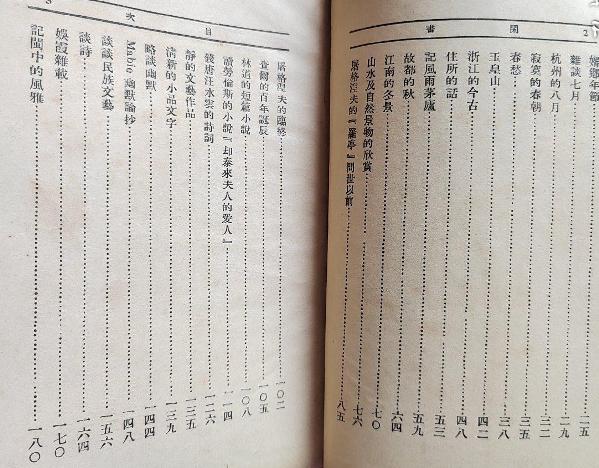 閒書
2
婿鄉年節 二五
雜談七月 二九
杭州的八月 三二
寂寞的春朝 三五
春愁 三八
玉皇山 四二
浙江的今古 四八
住所的話 五三
記風雨茅廬 五九
故都的秋 六四
江南的冬景 七〇
山水及自然景物的欣賞 七六
屠格涅夫的『羅亭』問世以前 八五
目次
3
屠格涅夫的臨終 一〇二
查爾的百年誕辰 一〇五
林道的短篇小說 一〇八
讀勞倫斯的小說『却泰來夫人的愛人』 一一四
錢唐汪水雲的詩詞 一二六
靜的文藝作品 一三五
清新的小品文字 一三九
略談幽默 一四四
Mabie 幽默論抄 一四八
談談民族文藝 一五六
談詩 一六四
娛霞雜載 一七〇
記閩中的風雅 一八〇